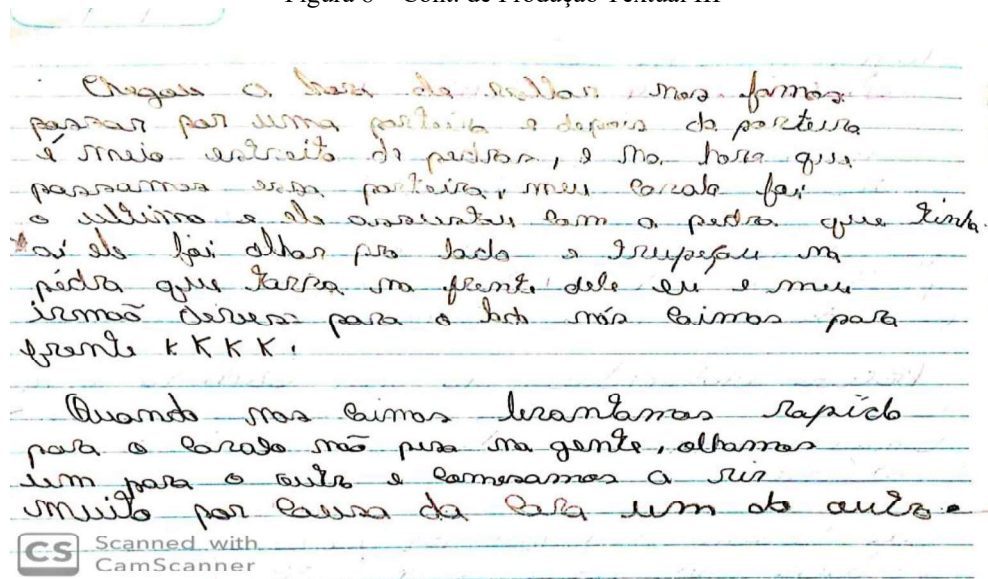 Figura 8 – Cont. de Produção Textual III
Chegou a hora de voltar, nos fomos
passar por uma porteira e depois da porteira
é meio estreito de pedras, e na hora que
passamos essa porteira, meu cavalo foi
o ultimo e ele assustou com a pedra que tinha.
aí ele foi olhar pro lado e trupeçou na
pédra que tarra na frente dele eu e meu
irmaõ para o nós caimos para
frente KKKK.
Quando nos caimos levantamos rapído
para o cavalo naõ pisa na gente, olhamos
um para o outro e comesamos a rir
muito por causa da cara um do outro e
CS Scanned with
CamScanner